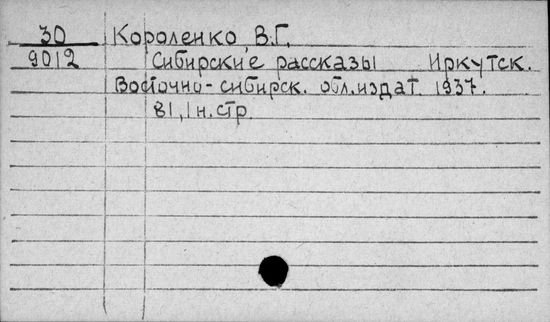 30 Короленко, В.Г.
9012 Сибирские рассказы Иркутск.
Восточно-сибирск. обл.издат. 1937.
81,1н.стр.